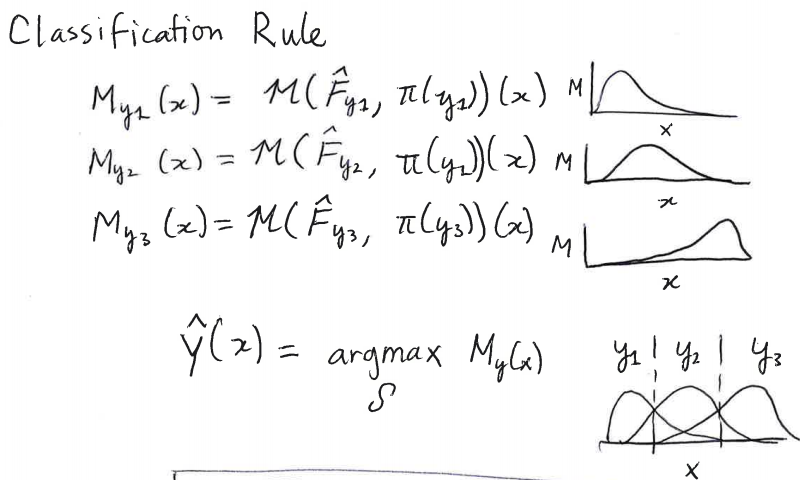 Classification Rule
M_{y1}(x) = M(F̂_{y1}, π(y1))(x) M x
M_{y2}(x) = M(F̂_{y2}, π(y1))(x) M x
M_{y3}(x) = M(F̂_{y3}, π(y3))(x) M x
Ŷ(x) = argmax M_y(x) y1 y2 y3
S
x